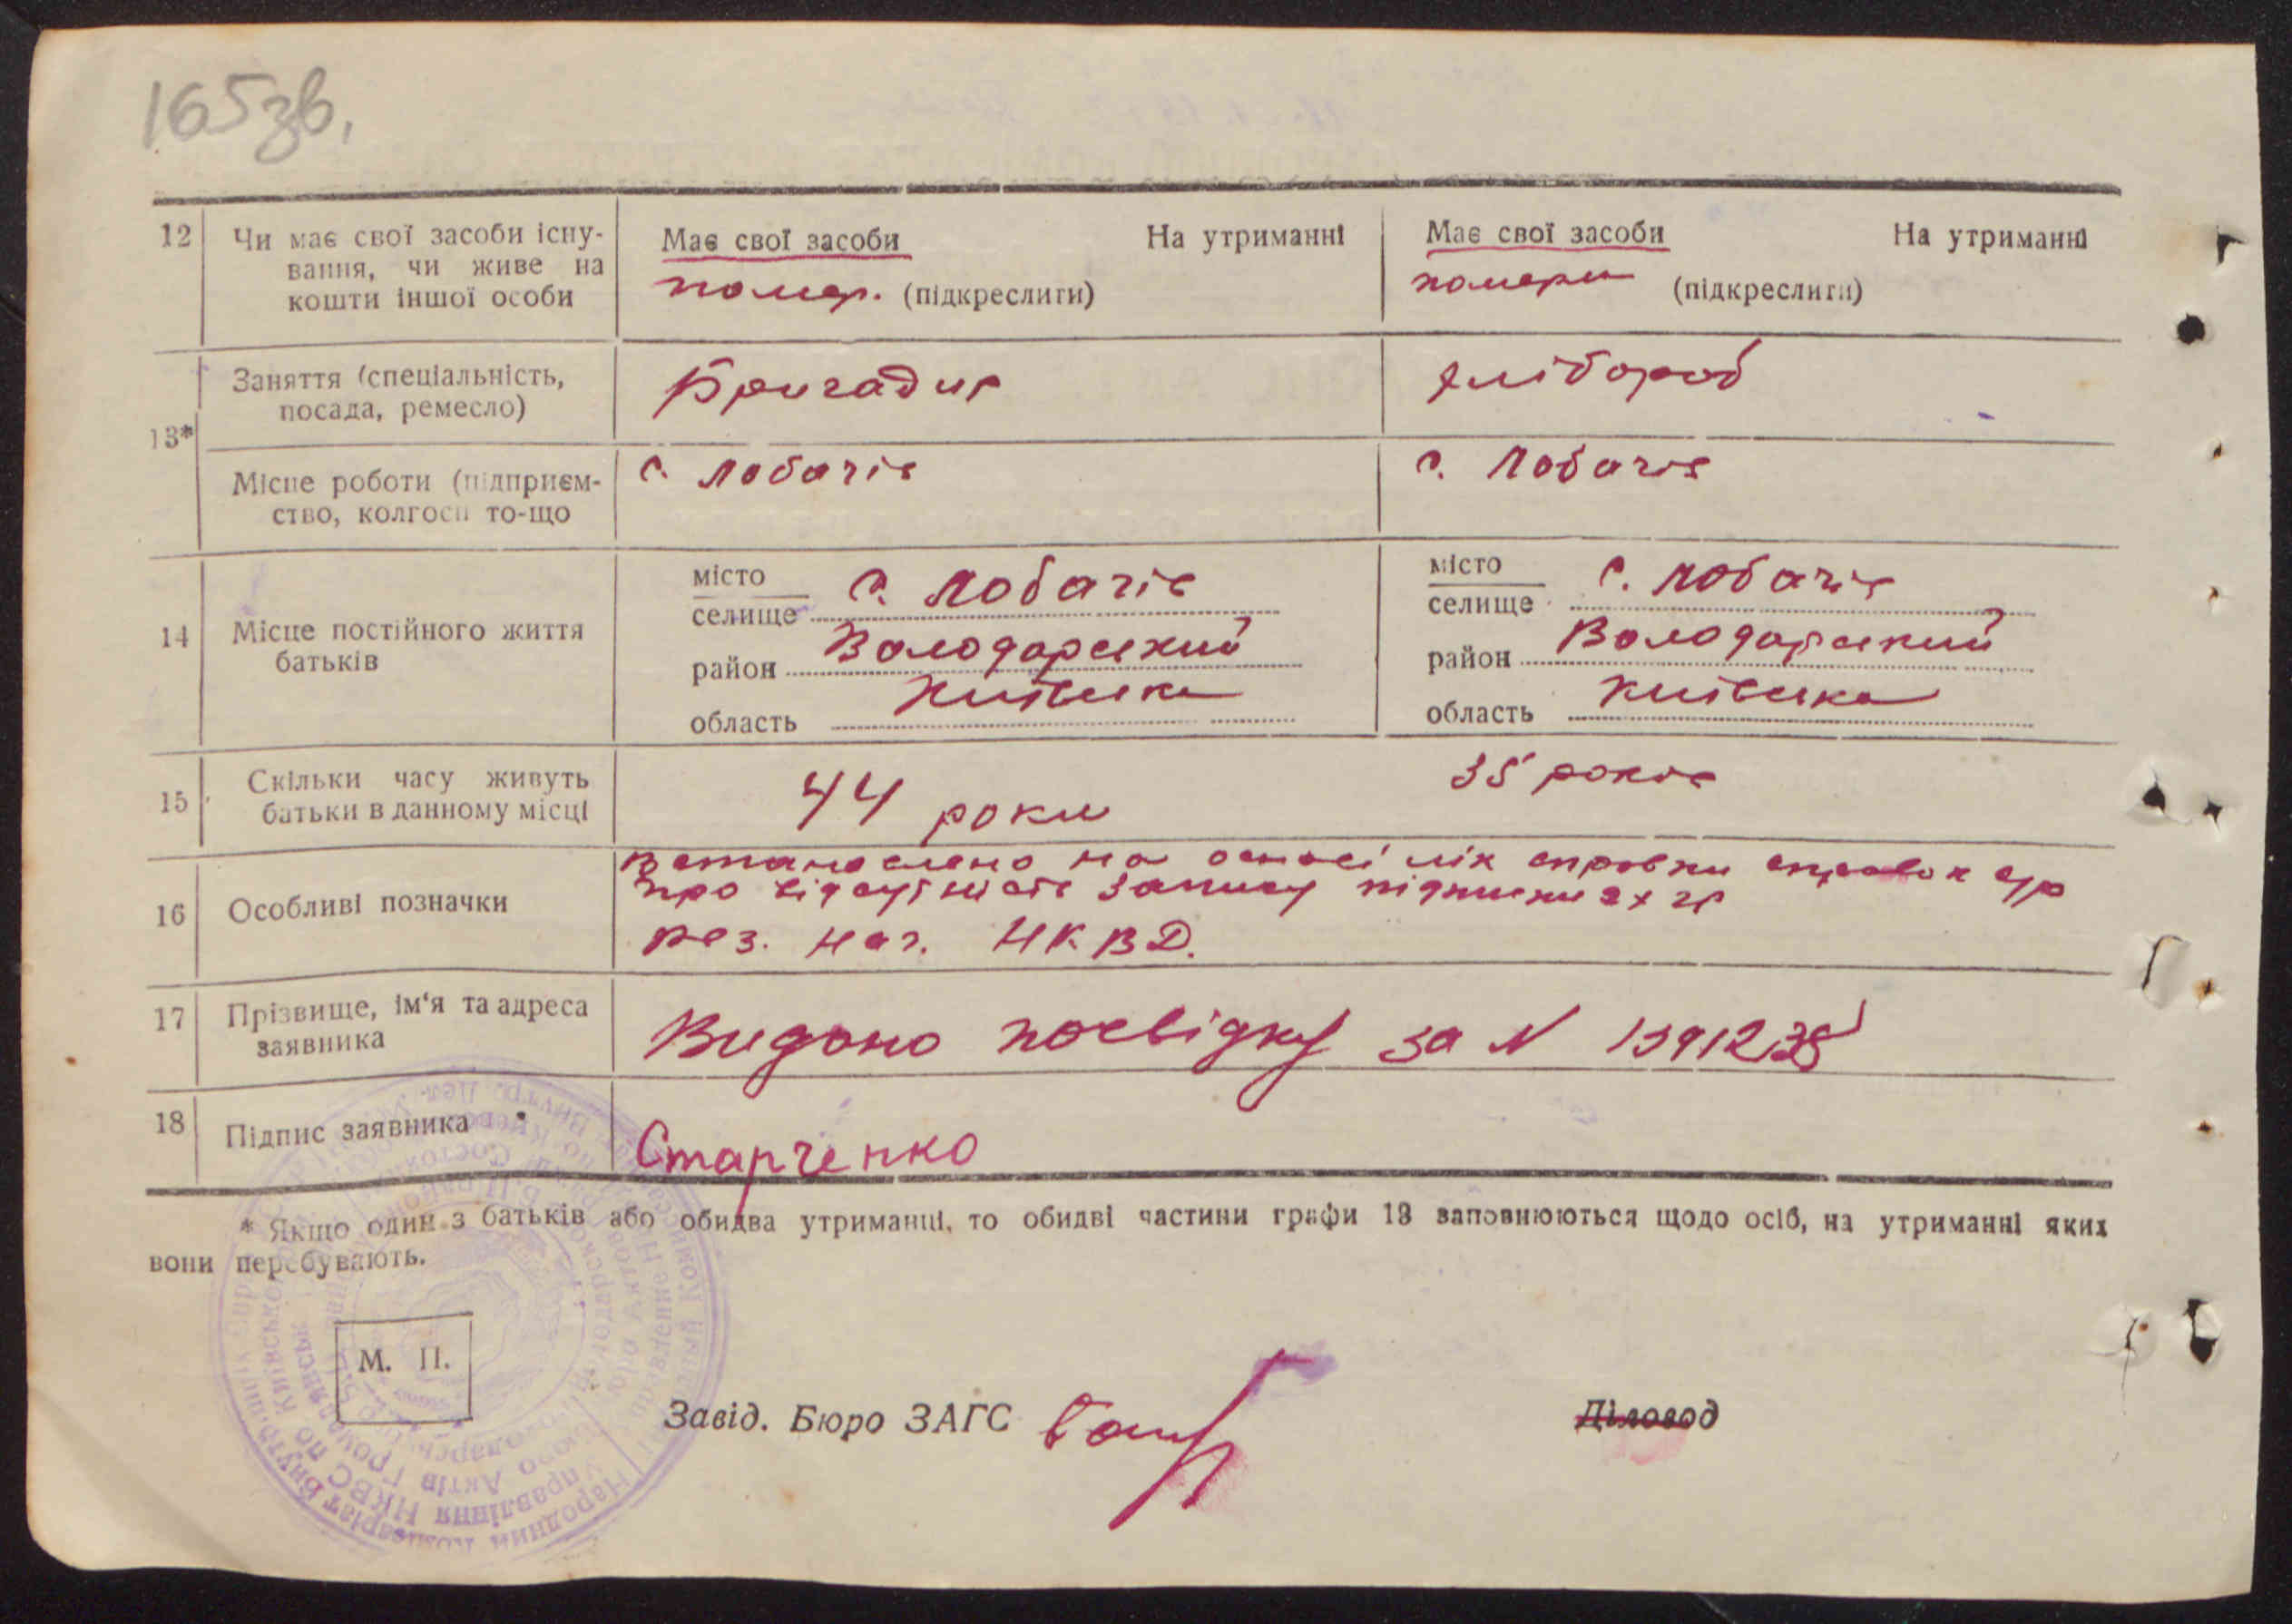 165зв.
12 Чи має свої засоби існу-
вання, чи живе на
кошти іншої особи
Має свої засоби На утриманні
помер. (підкреслити)
Має свої засоби На утриманні
померли (підкреслити)
13*
Заняття (спеціальність,
посада, ремесло)
Бригадир
хлібороб
Місце роботи (підприєм-
ство, колгосп то-що
с. Лобачів
с. Лобачів
14 Місце постійного життя
батьків
місто
селище с. Лобачів
район Володарський
область Київська
місто
селище с. Лобачів
район Володарський
область Київська
15 Скільки часу живуть
батьки в данному місці
44 роки
35 років
16 Особливі позначки
Встановлено на основі лік справки справок
про відсутність запису
рез. нач. НКВД.
17 Прізвище, ім'я та адреса
заявника
Видано посвідку за N
18 Підпис заявника
Старченко
* Якщо один з батьків або обидва утриманці, то обидві частини графи 13 заповнюються щодо осіб, на утриманні яких
вони перебувають.
М. П.
Завід. Бюро ЗАГС
Діловод